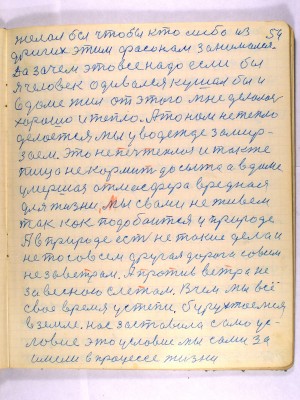 54
желал бы чтобы кто либо из
других этим фасоном занимался.
Да зачем это все надо если бы
я человек одевался кушал бы и
в доме жил от этого мне делалось
хорошо и тепло. А то нам не тепло
делается мы в одежде замер-
заем. Это не печь теплоя и также
пища не кормит досыта а в доме
умершая атмосфера вредная
для жизни, Мы с вами не живем
так как подобается у природе
А в природе есть не такие дела и
не то совсем другая дорога совсем
не за ветрам. А против ветра не
за весною с летам. В чем мы всё
своё время у степи, бурухтаемся
в земле. нас заставила само ус-
ловие это условие мы сами за
имели в процессе жизни